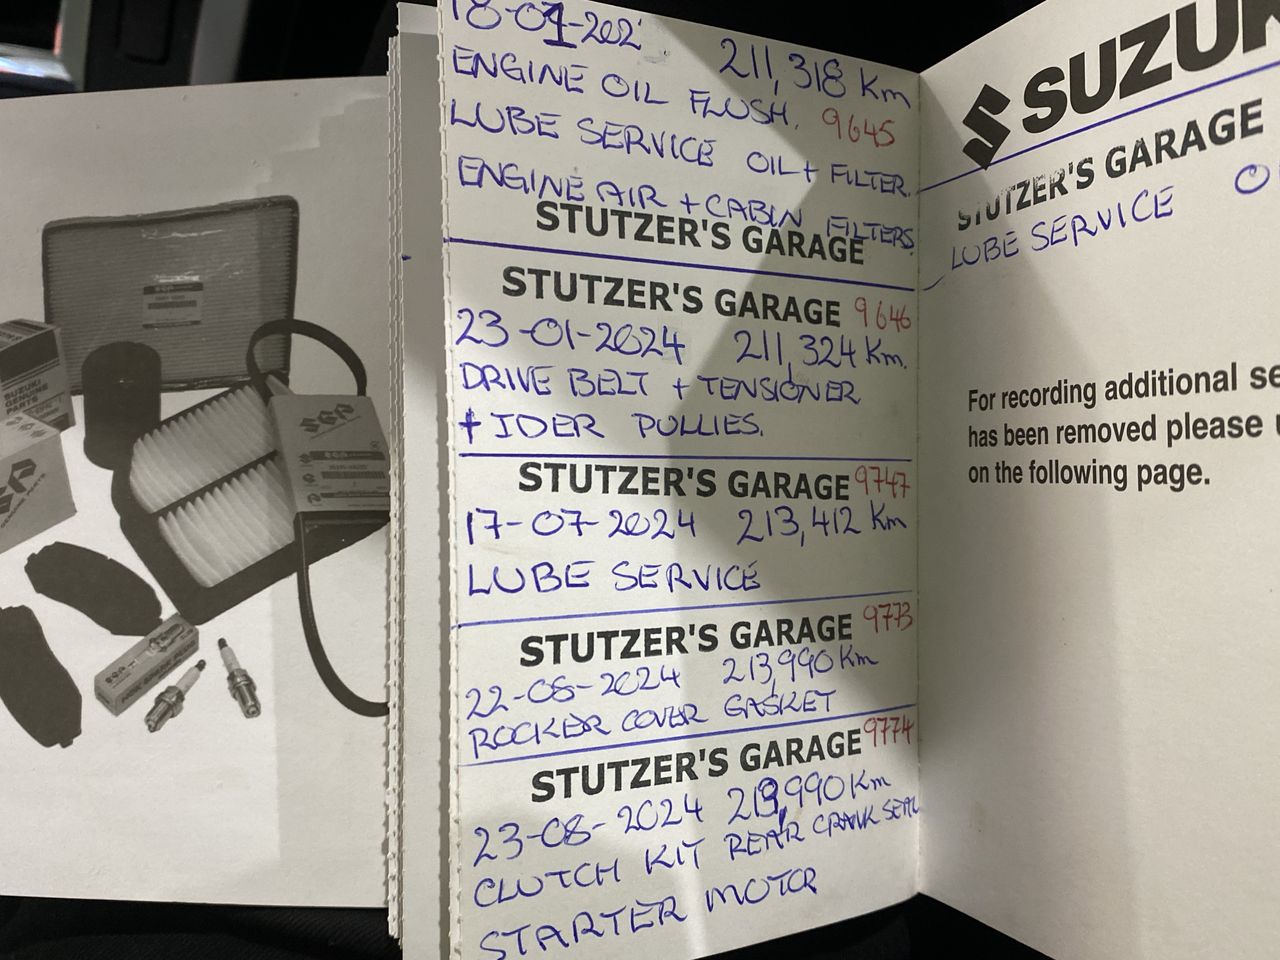 18-01-202
211,318 Km
ENGINE OIL FLUSH. 9645
LUBE SERVICE OIL + FILTER.
ENGINE AIR + CABIN FILTERS
STUTZER'S GARAGE
STUTZER'S GARAGE 9646
23-01-2024 211,324 Km.
DRIVE BELT + TENSIONER
+ IDER PULLIES.
STUTZER'S GARAGE 9747
17-07-2024 213,412 Km
LUBE SERVICE
STUTZER'S GARAGE 9773
22-08-2024 213,990 Km
ROCKER COVER GASKET
STUTZER'S GARAGE 9774
23-08-2024 213,990 Km
CLUTCH KIT REAR CRANK SEAL
STARTER MOTOR
SUZUK
STUTZER'S GARAGE
LUBE SERVICE
For recording additional se
has been removed please
on the following page.
SUZUKI
GENUINE
PARTS